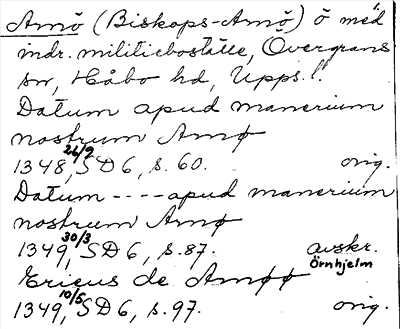 Arnö (Biskops-Arnö) ö med
indr. militieboställe, Övergrans
sn, Håbo hd, Upps. l.
Datum apud manerium
nostrum Arnø
1348, 26/9 SD 6, s. 60. orig.
Datum ---- apud manerium
nostrum Arnø
1349, 30/3 SD 6, s. 87. avskr.
Örnhjelm
Ericus de Arnøø
1349, 10/5 SD 6, s. 97. orig.